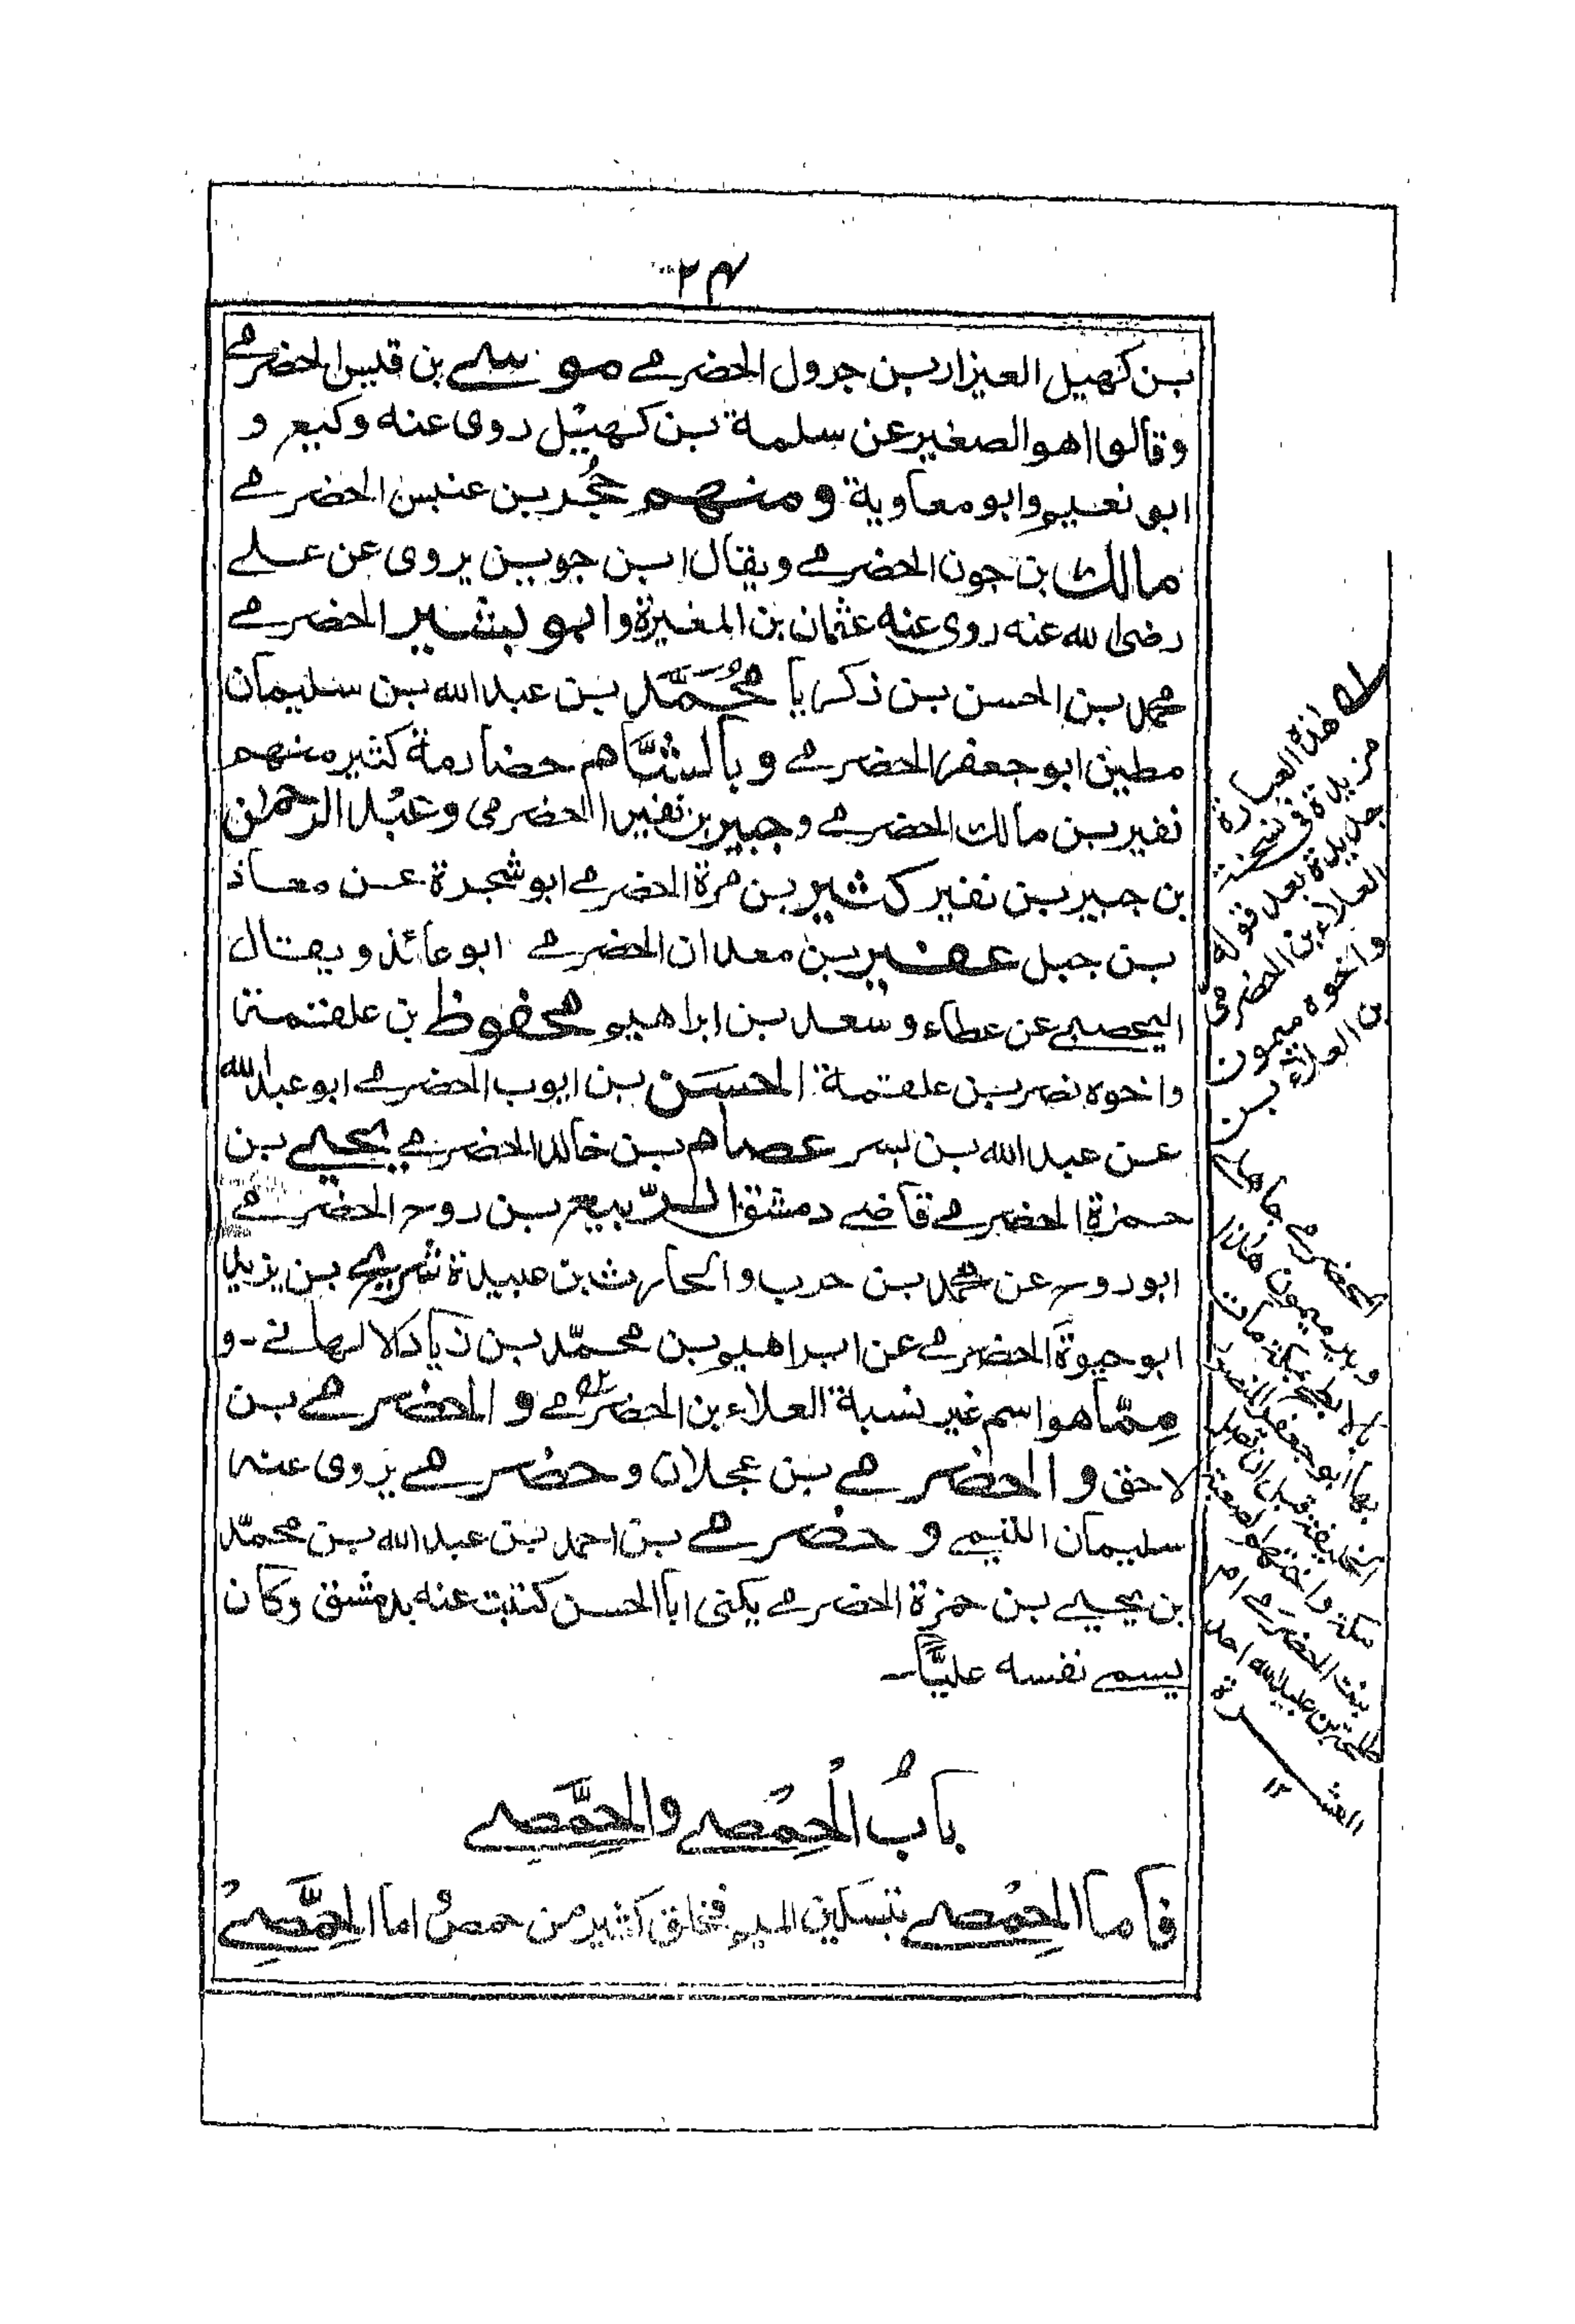 ٢٣
بن كهيل العيزار بن جرول الحضرمے موسے بن قيس الحضرمے
وقالوا هو الصغير عن سلمة بن كهيل روى عنه وكيع و
ابو نعيم وابو معاوية ومنهم حُجُر بن عنبس الحضرمے
مالك بن جون الحضرمے ويقال ابن جوين يروى عن علے
رضى الله عنه روى عنه عثمان بن المغيرة وابو بشير الحضرمے
محمد بن الحسن بن زكريا مُحَمَّد بن عبد الله بن سليمان
مطين ابو جعفر الحضرمے وبالشَّام حضارمة كثير منهم
نفير بن مالك الحضرمے وجبير بن نفير الحضرمى وعَبْد الرحمٰن
بن جبير بن نفير كثير بن مرة الحضرمے ابو شجرة عن معاذ
بن جبل عفير بن معدان الحضرمے ابو عائذ ويقال
اليحصبے عن عطاء وسعد بن ابراهيم محفوظ بن علقمة
واخوه نصر بن علقمة الحسن بن ايوب الحضرمے ابو عبد الله
عن عبد الله بن بسر عصام بن خالد الحضرمے يحيے بن
حمزة الحضرمے قاضے دمشق الرَّبيع بن روح الحضرمے
ابو روح عن محمد بن حرب والحارث بن عبيدة شريح بن يزيد
ابو حيوة الحضرمے عن ابراهيم بن محمّد بن زياد الالهانے ـ و
مِمّا هو اسم غير نسبة العلاء بن الحضرمے والحضرمے بن
لاحق والحضرمے بن عجلان وحضرمے يروى عنه
سليمان التيمے وحضرمے بن احمد بن عبد الله بن محمّد
بن يحيے بن حمزة الحضرمے يكنى ابا الحسن كتبت عنه بدمشق وكان
يسمے نفسه عليًّا ـ
بابُ الْحِمْصے والحِمَّصے
فاما الحِمْصے بتسكين الميم فخلق كثير من حمص اما الحِمَّصِے
له هذه العبارة
مزيدة فى نسخة
جديدة بعد قوله
العلاء بن الحضرمى
واخوه ميمون
بن العلاء بن
الحضرمے جاهلے
وبير ميمون هذا
بالابطح بمكة مات
بها ابو جعفر المنصور
الخليفة قبل ان يصل
مكة واختهما لصعبة
بنت الحضرمے ام
طلحة بن عبيد الله احد
العشرة ١٢